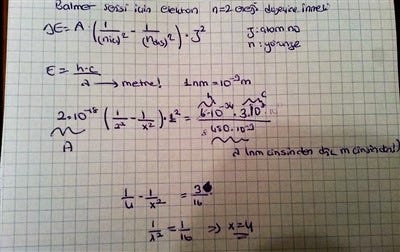 Balmer serisi için elektron n=2 enerji düzeyine inmeli
ΔE = A · (1/(niç)² - 1/(ndış)²) · Z²
Z: atom no
n: yörünge
E = h·c/λ → metre! 1nm = 10⁻⁹m
h c
2·10⁻¹⁸ (1/2² - 1/x²)·1² = 6·10⁻³⁴ · 3·10⁸ / 480·10⁻⁹
A
λ (nm cinsinden değil m cinsinden)
1/4 - 1/x² = 3/16
1/x² = 1/16 => x=4